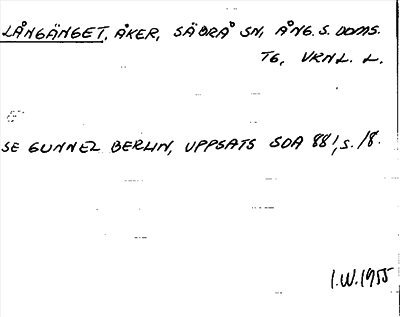 LÅNGÄNGET, ÅKER, SÄBRÅ SN, ÅNG. S. DOMS.
TG, VRNL. L.
SE GUNNEL BERLIN, UPPSATS SOA 881, S. 18.
I.W. 1955